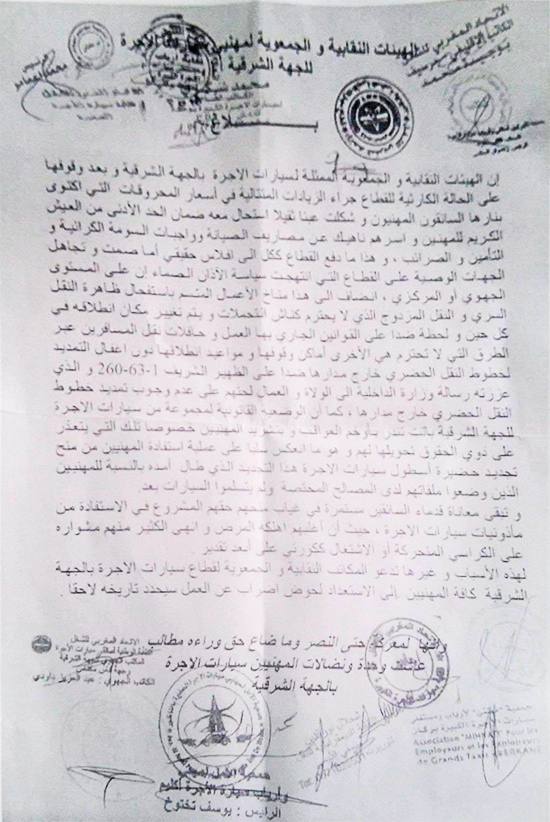 الهيئات النقابية و الجمعوية لمهنيي سيارات الاجرة
للجهة الشرقية
بـــــــــــلاغ
إن الهيئات النقابية و الجمعوية الممثلة لسيارات الاجرة بالجهة الشرقية و بعد وقوفها
على الحالة الكارثية للقطاع جراء الزيادات المتتالية في أسعار المحروقات التي اكتوى
بنارها السائقون المهنيون و شكلت عبئا ثقيلا استحال معه ضمان الحد الأدنى من العيش
الكريم للمهنيين و اسرهم ناهيك عن مصاريف الصيانة وواجبات السومة الكرائية و
التأمين و الضرائب ، و هذا ما دفع القطاع ككل الى افلاس حقيقي أما صمت و تجاهل
الجهات الوصية على القطاع التي انتهجت سياسة الآذان الصماء ان على المستوى
الجهوي أو المركزي ، انضاف الى هذا مناخ الأعمال المتسم باستفحال ظاهرة النقل
السري و النقل المزدوج الذي لا يحترم كناش التحملات و يتم تغيير مكان انطلاقه في
كل حين و لحظة ضدا على القوانين الجاري بها العمل و حافلات نقل المسافرين عبر
الطرق التي لا تحترم هي الأخرى أماكن وقوفها و مواعيد انطلاقها دون اغفال التمديد
لخطوط النقل الحضري خارج مدارها ضدا على الظهير الشريف 1-63-260 و الذي
عززته رسالة وزارة الداخلية الى الولاة و العمال لحثهم على عدم وجوب تمديد خطوط
النقل الحضري خارج مدارها ، كما أن الوضعية القانونية لمجموعة من سيارات الاجرة
للجهة الشرقية باتت تنذر بأوخم العواقب و بتشريد المهنيين خصوصا تلك التي يتعذر
على ذوي الحقوق تحويلها لهم و هو ما انعكس سلبا على عملية استفادة المهنيين من منح
تجديد حضيرة أسطول سيارات الاجرة هذا التجديد الذي طال أمده بالنسبة للمهنيين
الذين وضعوا ملفاتهم لدى المصالح المختصة ولم يتسلموا السيارات بعد.
و تبقى معاناة قدماء السائقين مستمرة في غياب منحهم حقهم المشروع في الاستفادة من
مأذونيات سيارات الاجرة ، حيث أن أغلبهم اهلكه المرض و انهى الكثير منهم مشواره
على الكراسي المتحركة أو الاشتغال ككورتي على أبعد تقدير .
لهذه الأسباب و غيرها تدعو المكاتب النقابية و الجمعوية لقطاع سيارات الاجرة بالجهة
الشرقية كافة المهنيين إلى الاستعداد لخوض اضراب عن العمل سيحدد تاريخه لاحقا .
لمعركة حتى النصر وما ضاع حق وراءه مطالب
عاشت وحدة ونضالات المهنيين سيارات الاجرة
بالجهة الشرقية
الاتحاد المغربي للشغل
المكتب الجهوي للجهة الشرقية
الكاتب الجهوي : عبد العزيز داودي
جمعية الأمل لمهنيي
وأرباب سيارة الأجرة إقليم
الرئيس : يوسف تختوخ
Association
Employeurs et les Employeurs
de Grands Taxis BERKANE